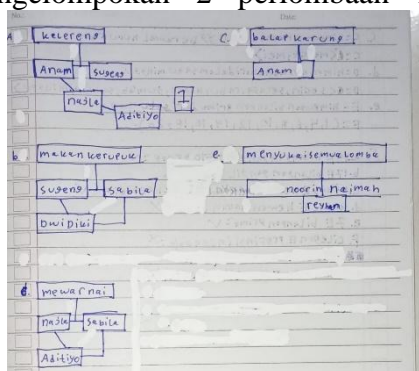 ngelompokan 2 perlombaan
No. Date
a. kelereng
Anam sugeng
nazla
Aditiyo
1
C. balap karung
Anam
b. makan kerupuk
sugeng sabila
Dwi Piki
e. menyukai semua lomba
noorin naimah
reyhan
d. mewarnai
nazla sabila
Aditiyo